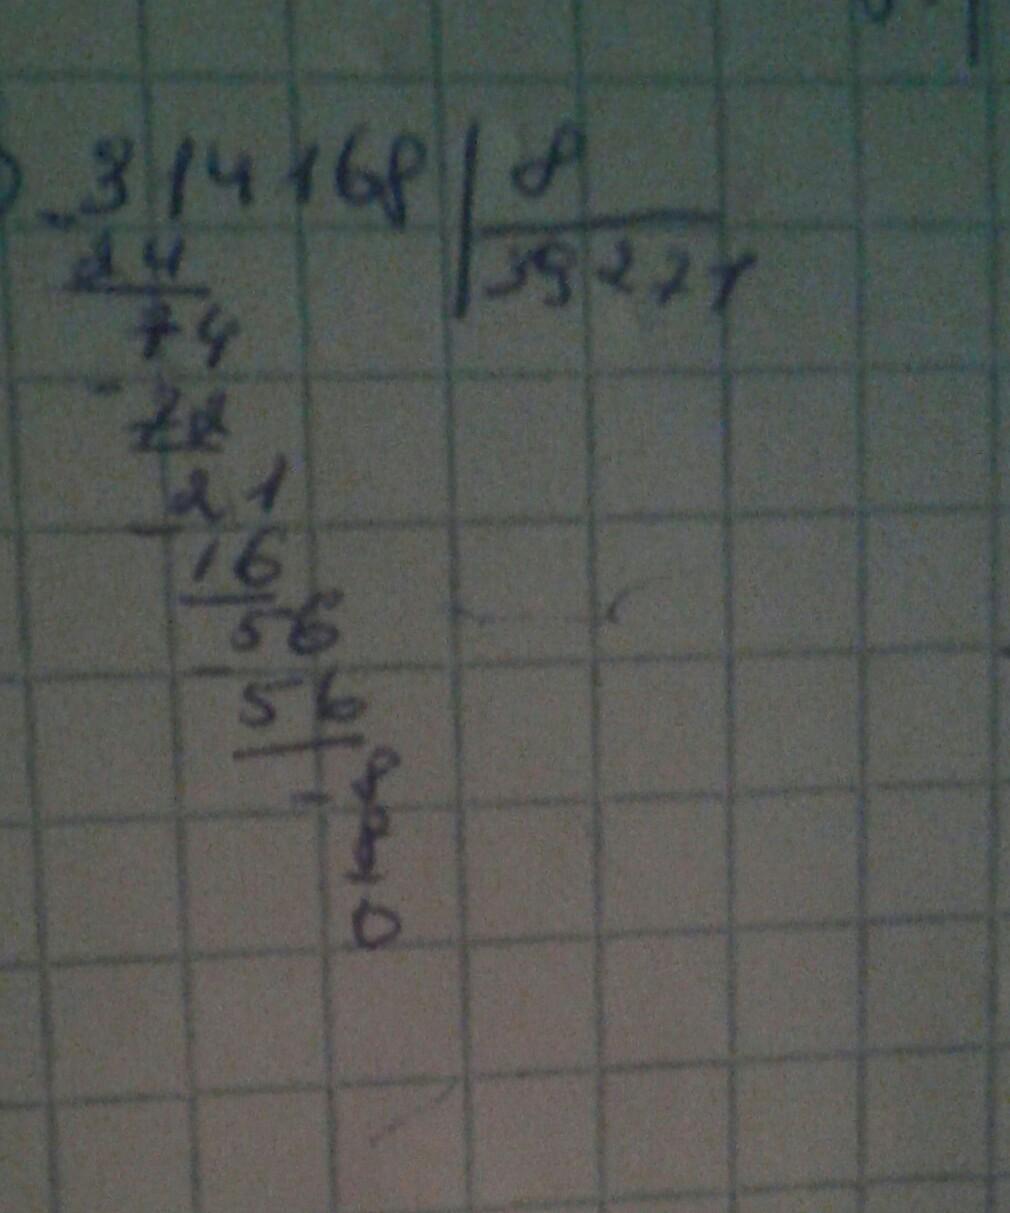 314168 | 8
- 24 39271
74
- 72
21
- 16
56
- 56
8
- 8
0